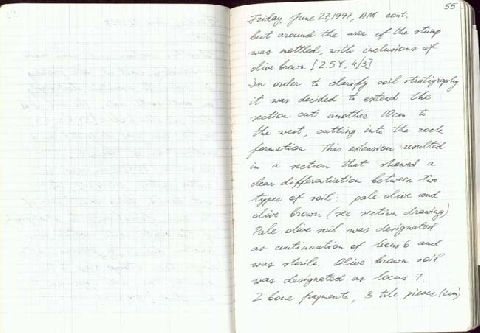 55
Friday, June 27, 1997, AM cont.
but around the area of the stump
was mottled, with inclusions of
olive brown [2.5Y, 4/3]
In order to clarify soil stratigraphy
it was decided to extend the
section cut another 10cm to
the west, cutting into the rock
formation This extension resulted
in a section that showed a
clear differentiation between two
types of soil: pale olive and
olive brown (see section drawing)
Pale olive soil was designated
as continuation of locus 6 and
was sterile Olive brown soil
was designated as locus 7
2 bone fragments, 3 tile pieces